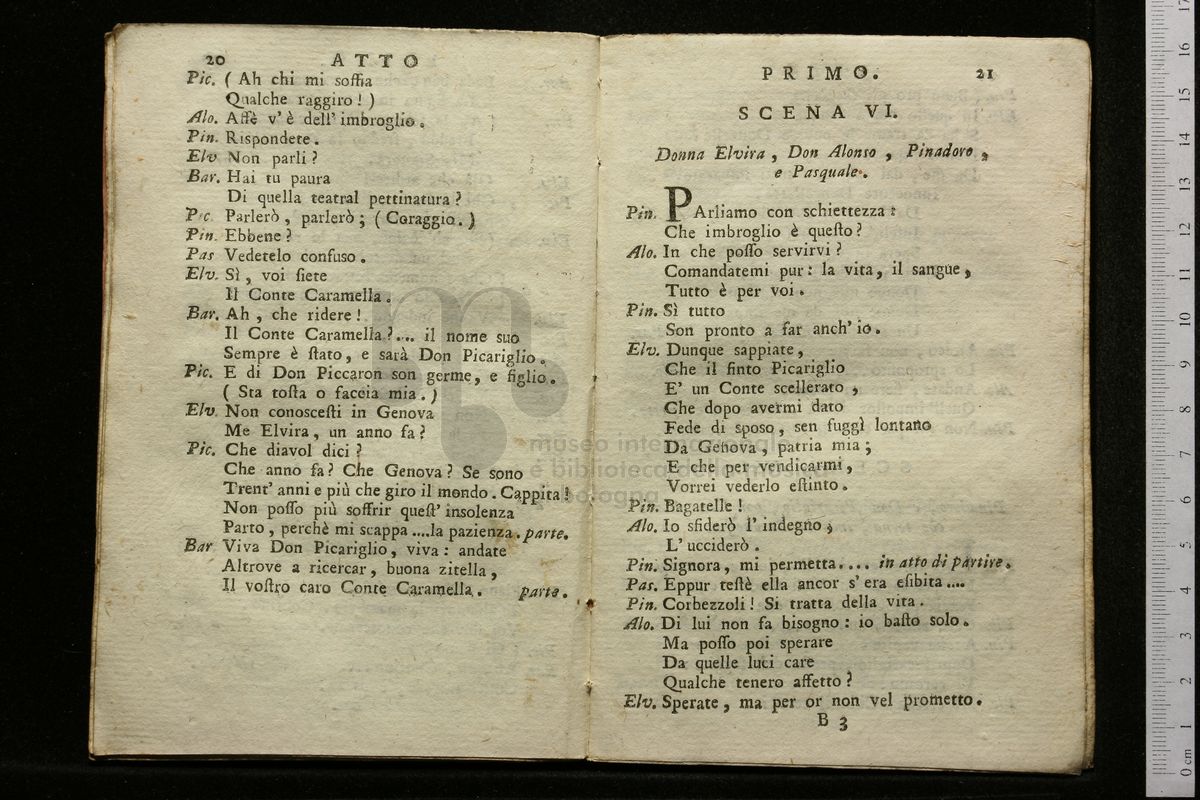 20 ATTO
Pic. ( Ah chi mi soffia
Qualche raggiro ! )
Alo. Affè v' è dell' imbroglio.
Pin. Rispondete.
Elv Non parli ?
Bar. Hai tu paura
Di quella teatral pettinatura ?
Pic. Parlerò, parlerò ; ( Coraggio. )
Pin. Ebbene ?
Pas Vedetelo confuso.
Elv. Sì, voi ſiete
Il Conte Caramella.
Bar. Ah, che ridere !
Il Conte Caramella ?.... il nome suo
Sempre è ſtato, e sarà Don Picariglio.
Pic. E di Don Piccaron son germe, e figlio.
( Sta toſta o faccia mia. )
Elv. Non conosceſti in Genova
Me Elvira, un anno fa ?
Pic. Che diavol dici ?
Che anno fa ? Che Genova ? Se sono
Trent' anni e più che giro il mondo. Cappita !
Non poſſo più soffrir queſt' insolenza
Parto, perchè mi scappa ....la pazienza. parte.
Bar Viva Don Picariglio, viva : andate
Altrove a ricercar, buona zitella,
Il voſtro caro Conte Caramella. parte.
PRIMO. 21
SCENA VI.
Donna Elvira, Don Alonso, Pinadoro,
e Pasquale.
Pin. PArliamo con schiettezza :
Che imbroglio è queſto ?
Alo. In che poſſo servirvi ?
Comandatemi pur : la vita, il sangue,
Tutto è per voi.
Pin. Sì tutto
Son pronto a far anch' io.
Elv. Dunque sappiate,
Che il finto Picariglio
E' un Conte scellerato,
Che dopo avermi dato
Fede di sposo, sen fuggì lontano
Da Genova, patria mia ;
E che per vendicarmi,
Vorrei vederlo eſtinto.
Pin. Bagatelle !
Alo. Io sfiderò l' indegno ;
L' ucciderò.
Pin. Signora, mi permetta.... in atto di partire.
Pas. Eppur teſtè ella ancor s' era eſibita....
Pin. Corbezzoli ! Si tratta della vita.
Alo. Di lui non fa bisogno : io baſto solo.
Ma poſſo poi sperare
Da quelle luci care
Qualche tenero affetto ?
Elv. Sperate, ma per or non vel prometto.
B 3
museo internazionale
e biblioteca della musica
di bologna
0 cm 1 2 3 4 5 6 7 8 9 10 11 12 13 14 15 16 17